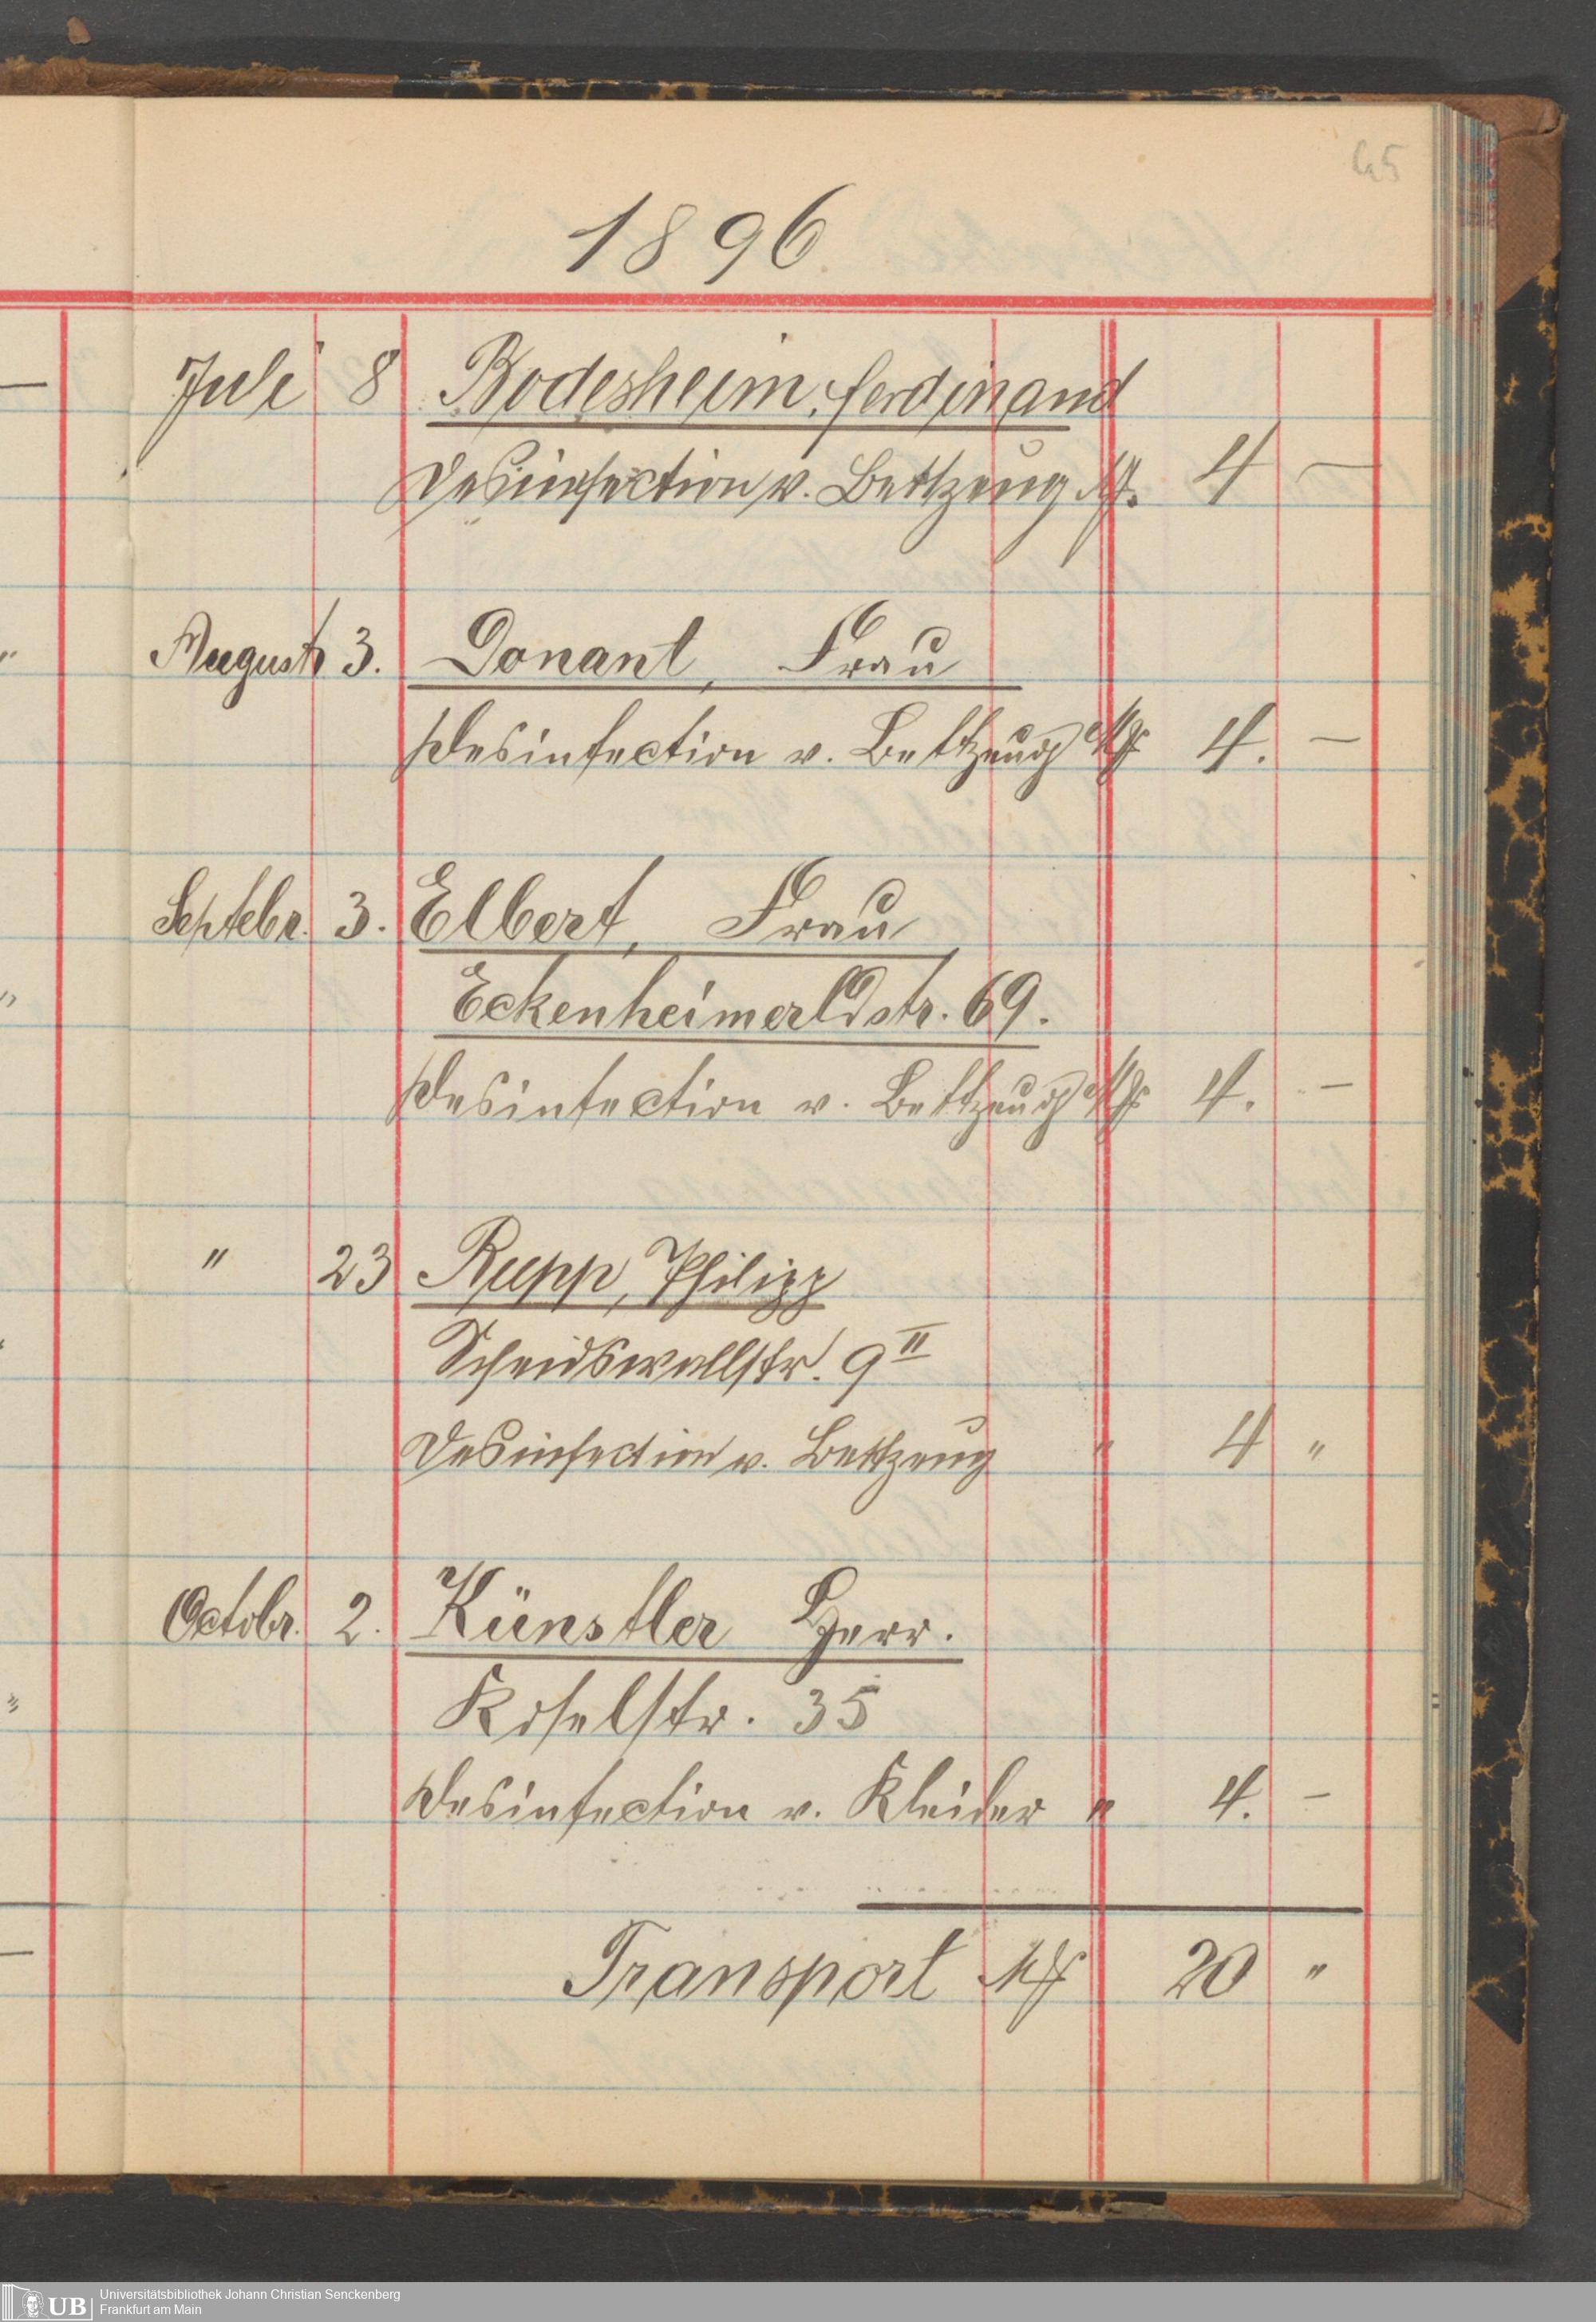 65
1896
Juli 8 Bodesheim, ferdinand
Desinfection v. Bettzeug M. 4 —
August 3. Donant, Frau
Desinfection v. Bettzeug M 4. —
Septebr. 3. Elbert, Frau
Eckenheimerldstr. 69.
Desinfection v. Bettzeug M 4. —
" 23 Rupp, Philipp
Scheidswallstr. 9 II
Desinfection v. Bettzeug " 4 "
Octobr. 2. Künstler Herr.
Koselstr. 35
Desinfection v. Kleider " 4. —
Transport M 20 "
UB Universitätsbibliothek Johann Christian Senckenberg
Frankfurt am Main